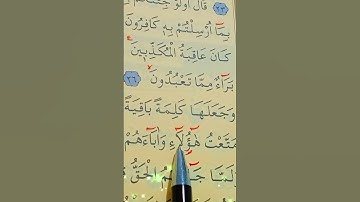 ٢٣ قَالَ أَوَلَوْ جِئْتُكُمْ
بِمَٓا اُرْسِلْتُمْ بِهٖ كَافِرُونَ
كَانَ عَاقِبَةُ الْمُكَذِّبٖينَ
بَرَٓاءٌ مِمَّا تَعْبُدُونَ ٢٦
وَجَعَلَهَا كَلِمَةً بَاقِيَةً
مَتَّعْتُ هٰٓؤُ۬لَٓاءِ وَاٰبَٓاءَهُمْ
الْحَقُّ